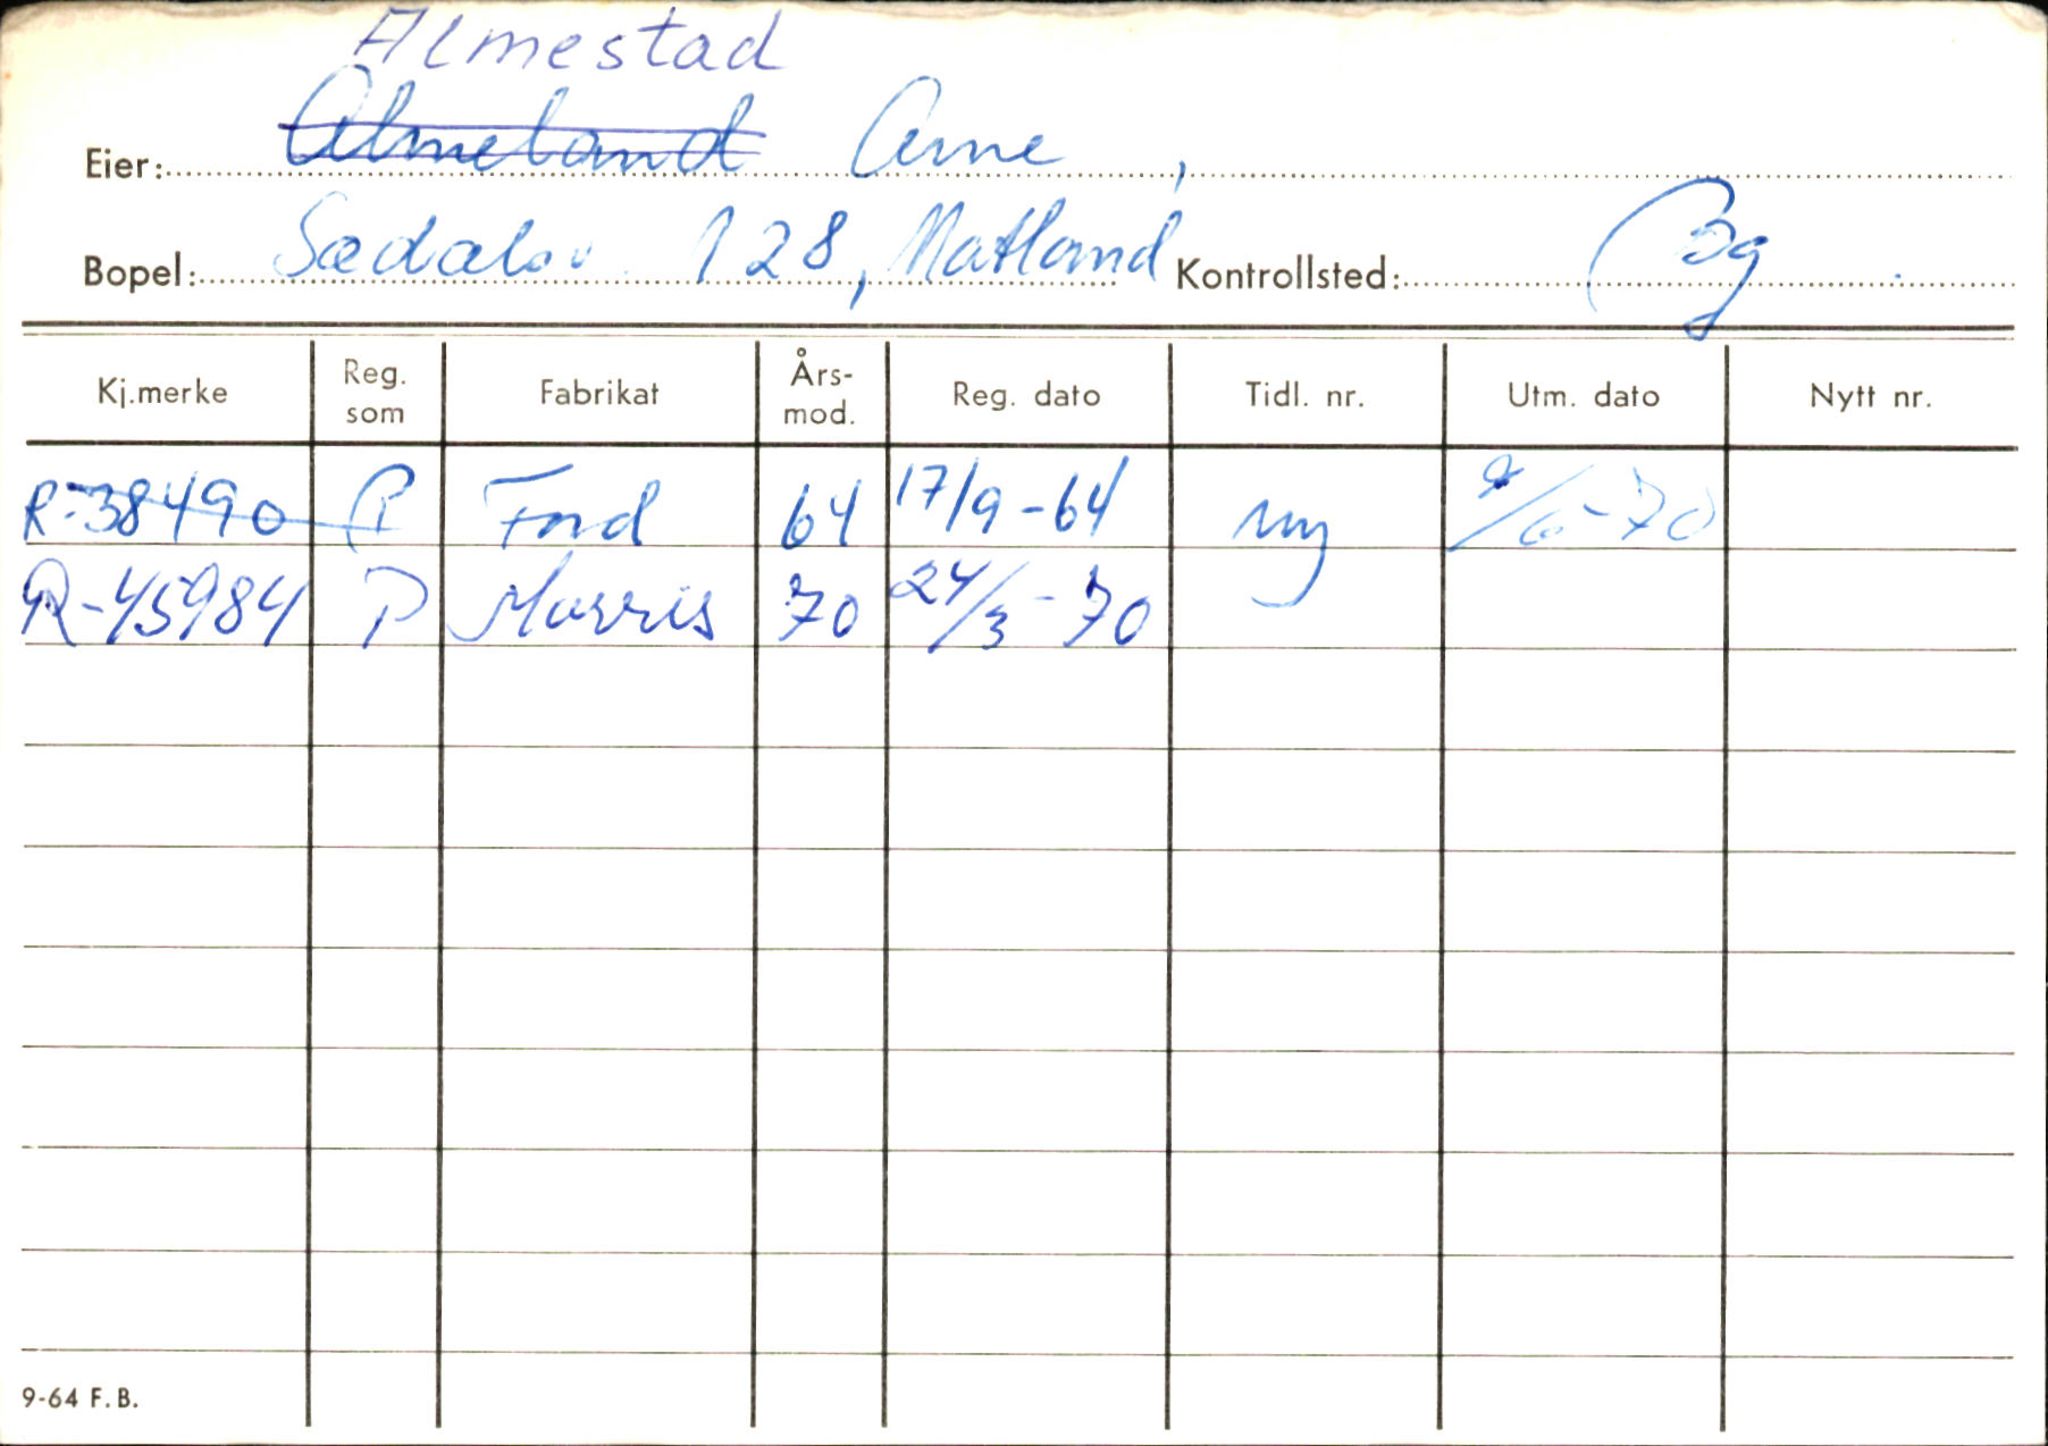 Almestad
Eier: Almeland Arne,
Bopel: Sædalsv. 128, Natland Kontrollsted: Bg
Kj.merke Reg. som Fabrikat Års-mod. Reg. dato Tidl. nr. Utm. dato Nytt nr.
R-38490 P Ford 64 17/9-64 ny 9/6-70
R-45984 P Morris 70 24/3-70
9-64 F.B.